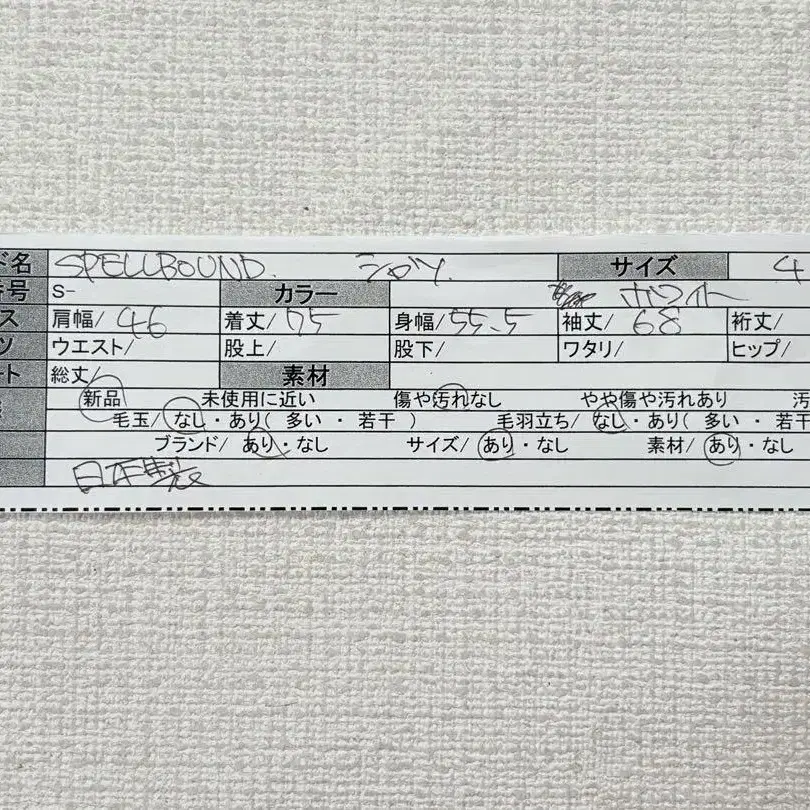 ド名 SPELLBOUND. シャツ. サイズ 4
番号 S- カラー ホワイト
ス 肩幅/ 46 着丈/ 75 身幅/ 55.5 袖丈/ 68 裄丈/
ツ ウエスト/ 股上/ 股下/ ワタリ/ ヒップ/
ート 総丈/ 素材
新品 未使用に近い 傷や汚れなし やや傷や汚れあり 汚
毛玉/ なし・あり( 多い ・ 若干 ) 毛羽立ち/ なし・あり( 多い ・ 若干
ブランド/ あり・なし サイズ/ あり・なし 素材/ あり・なし
日本製